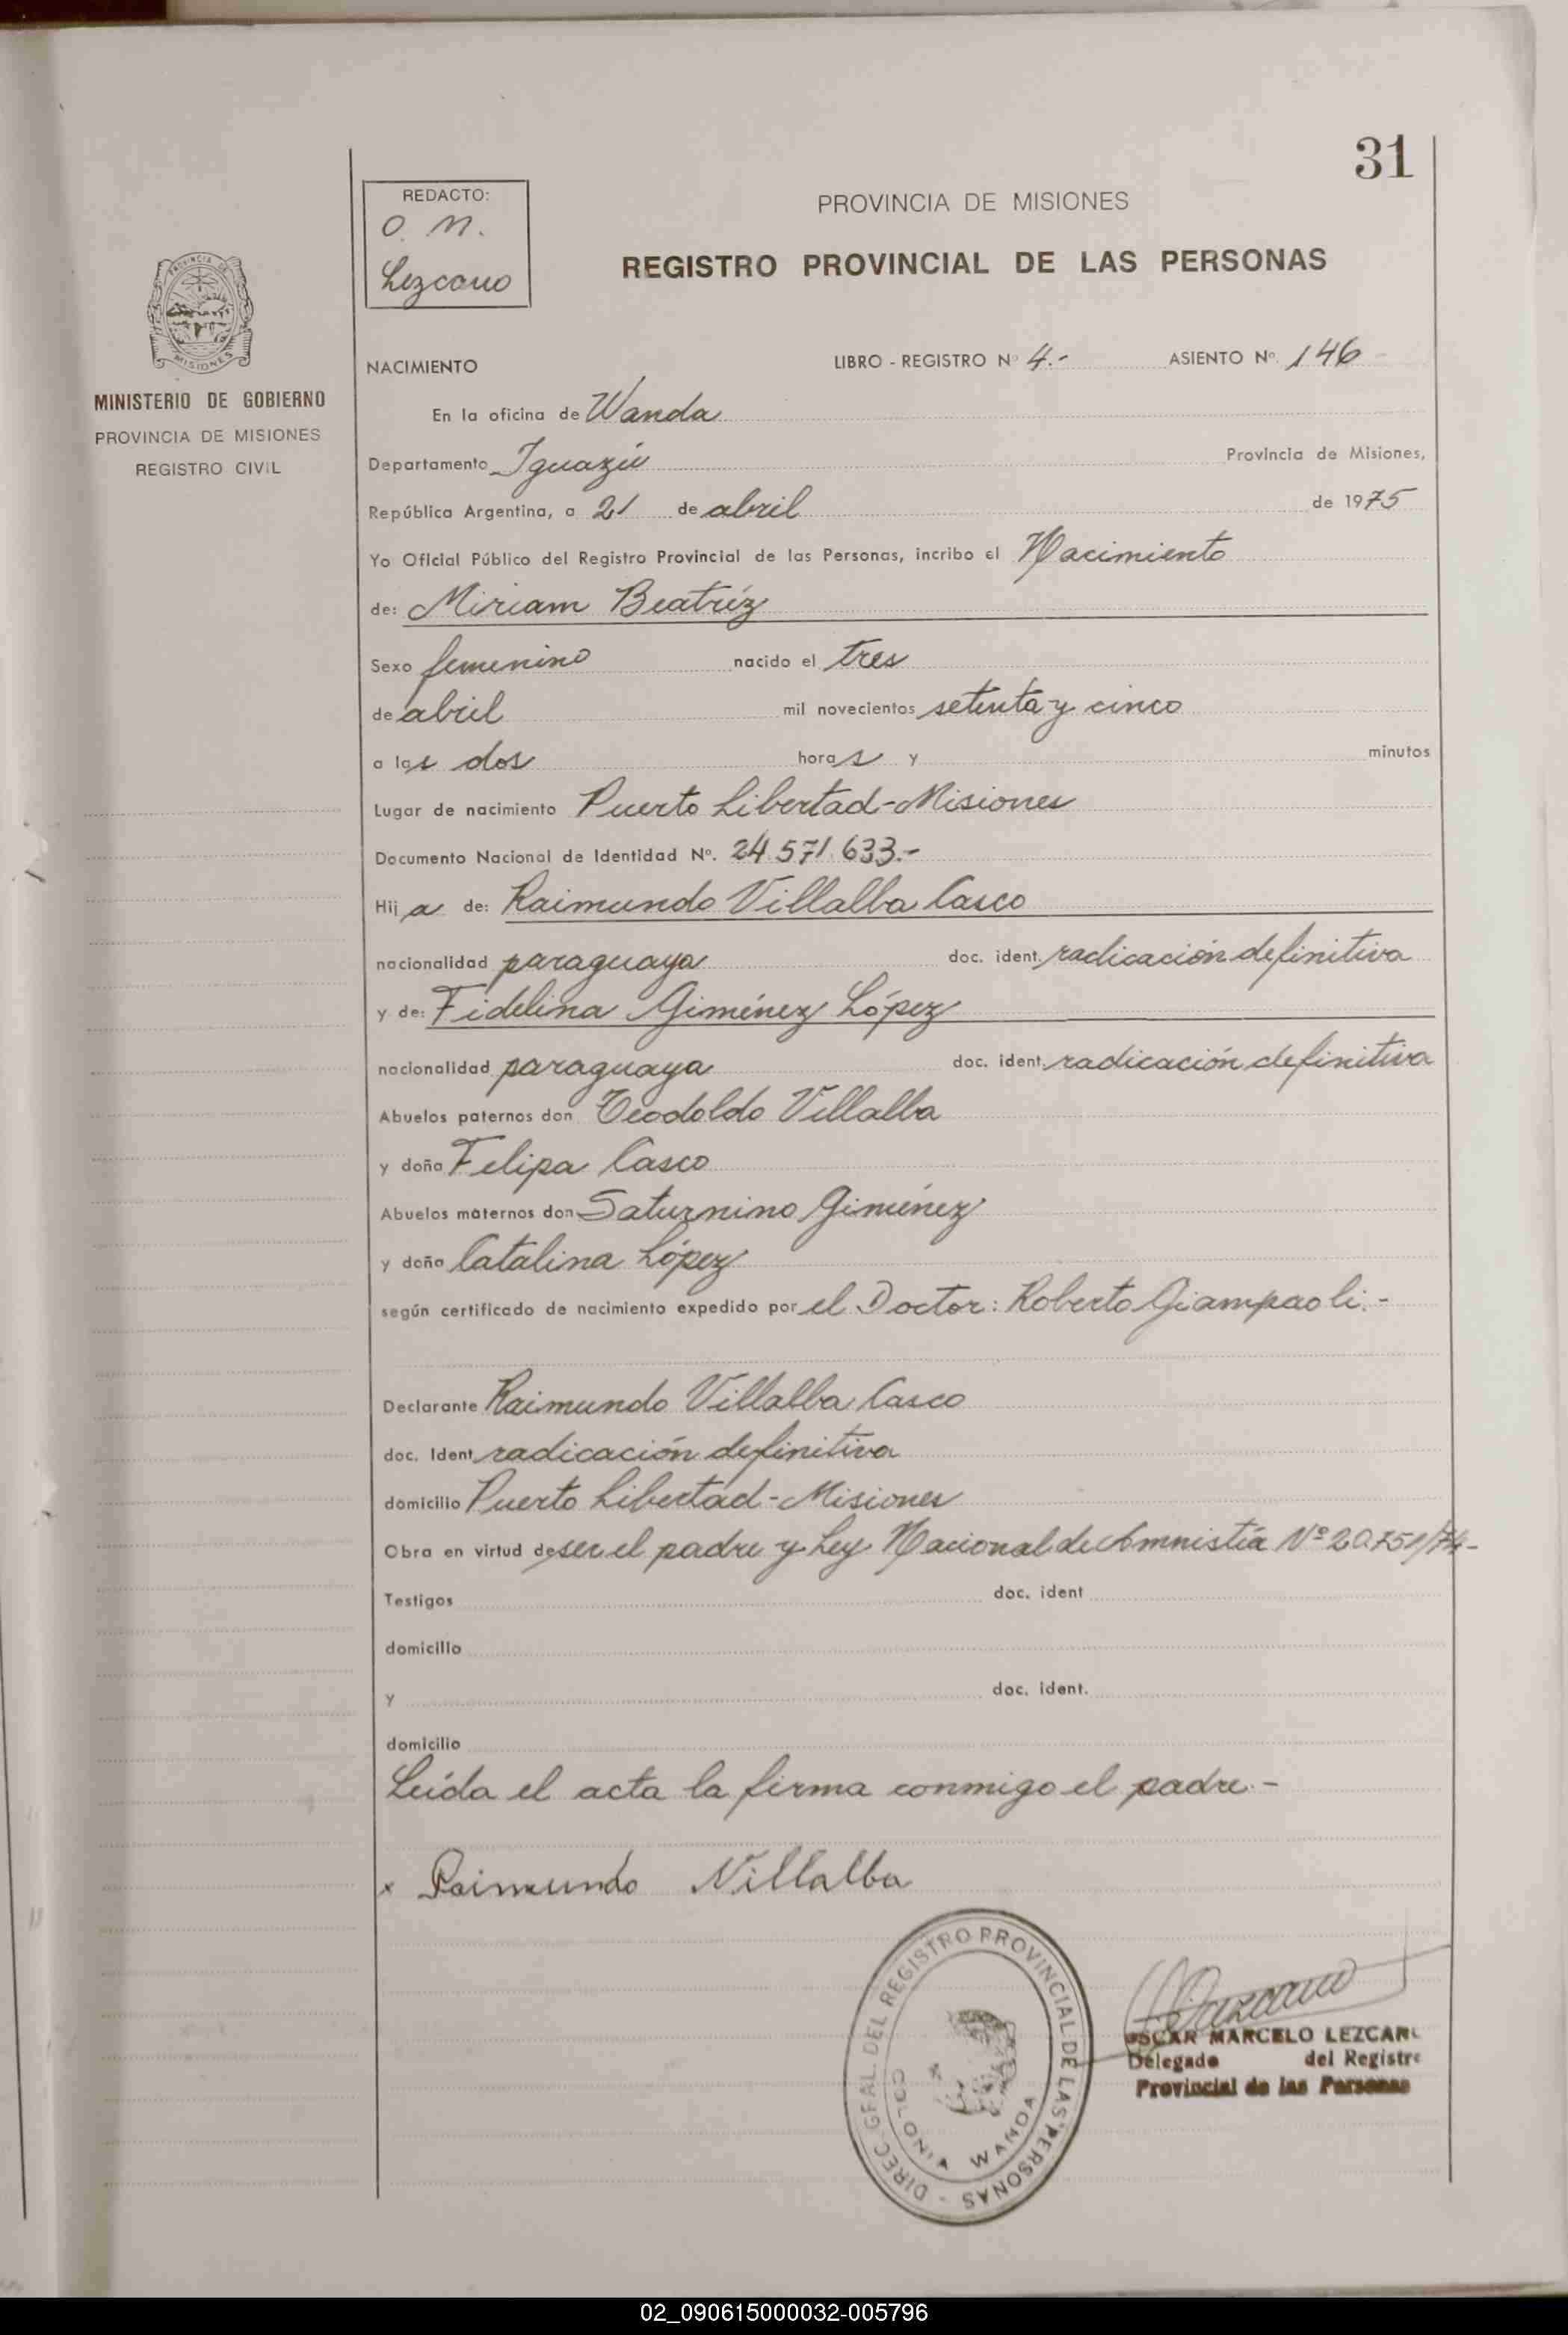 31
REDACTO:
O. M.
Lezcano
PROVINCIA DE MISIONES
REGISTRO PROVINCIAL DE LAS PERSONAS
PROVINCIA DE
MISIONES
MINISTERIO DE GOBIERNO
PROVINCIA DE MISIONES
REGISTRO CIVIL
NACIMIENTO LIBRO - REGISTRO Nº 4.- ASIENTO Nº. 146
En la oficina de Wanda
Departamento Iguazú Provincia de Misiones,
República Argentina, a 21 de abril de 1975
Yo Oficial Público del Registro Provincial de las Personas, incribo el Nacimiento
de: Miriam Beatríz
Sexo femenino nacido el tres
de abril mil novecientos setenta y cinco
a las dos horas y minutos
Lugar de nacimiento Puerto Libertad-Misiones
Documento Nacional de Identidad Nº. 24.571.633.-
Hij a de: Raimundo Villalba Casco
nacionalidad paraguaya doc. ident. radicación definitiva
y de: Fidelina Giménez López
nacionalidad paraguaya doc. ident. radicación definitiva
Abuelos paternos don Teodoldo Villalba
y doña Felipa Casco
Abuelos maternos don Saturnino Giménez
y doña Catalina López
según certificado de nacimiento expedido por el Doctor: Roberto Giampaoli.-
Declarante Raimundo Villalba Casco
doc. Ident radicación definitiva
domicilio Puerto Libertad-Misiones
Obra en virtud de ser el padre y Ley Nacional de Amnistía Nº 20.751/74-
Testigos doc. ident
domicilio
y doc. ident.
domicilio
Leída el acta la firma conmigo el padre.-
x Raimundo Villalba
DIREC. GRAL. DEL REGISTRO PROVINCIAL DE LAS PERSONAS -
COLONIA WANDA
OSCAR MARCELO LEZCANO
Delegado del Registro
Provincial de las Personas
02_090615000032-005796